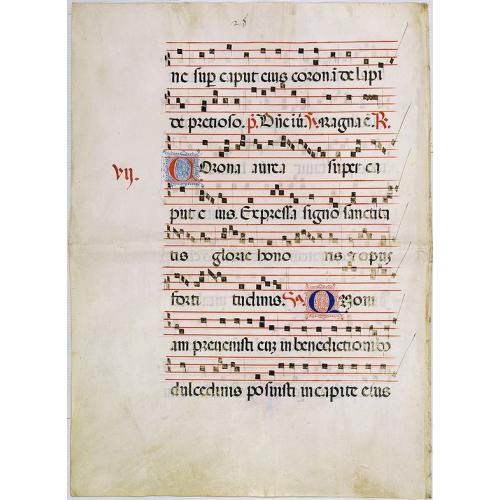 28
ne sup caput eius coronā de lapi
de pretioso. p̄. Dñe iu. Magna ē. R.
vij.
Corona aurea super ca
put eius. Expressa signo sanctita
tis glorie hono ris opus
forti tudinis. Qm̄
am prevenisti eū in benedictionibꝰ
dulcedinis posuisti in capite eius